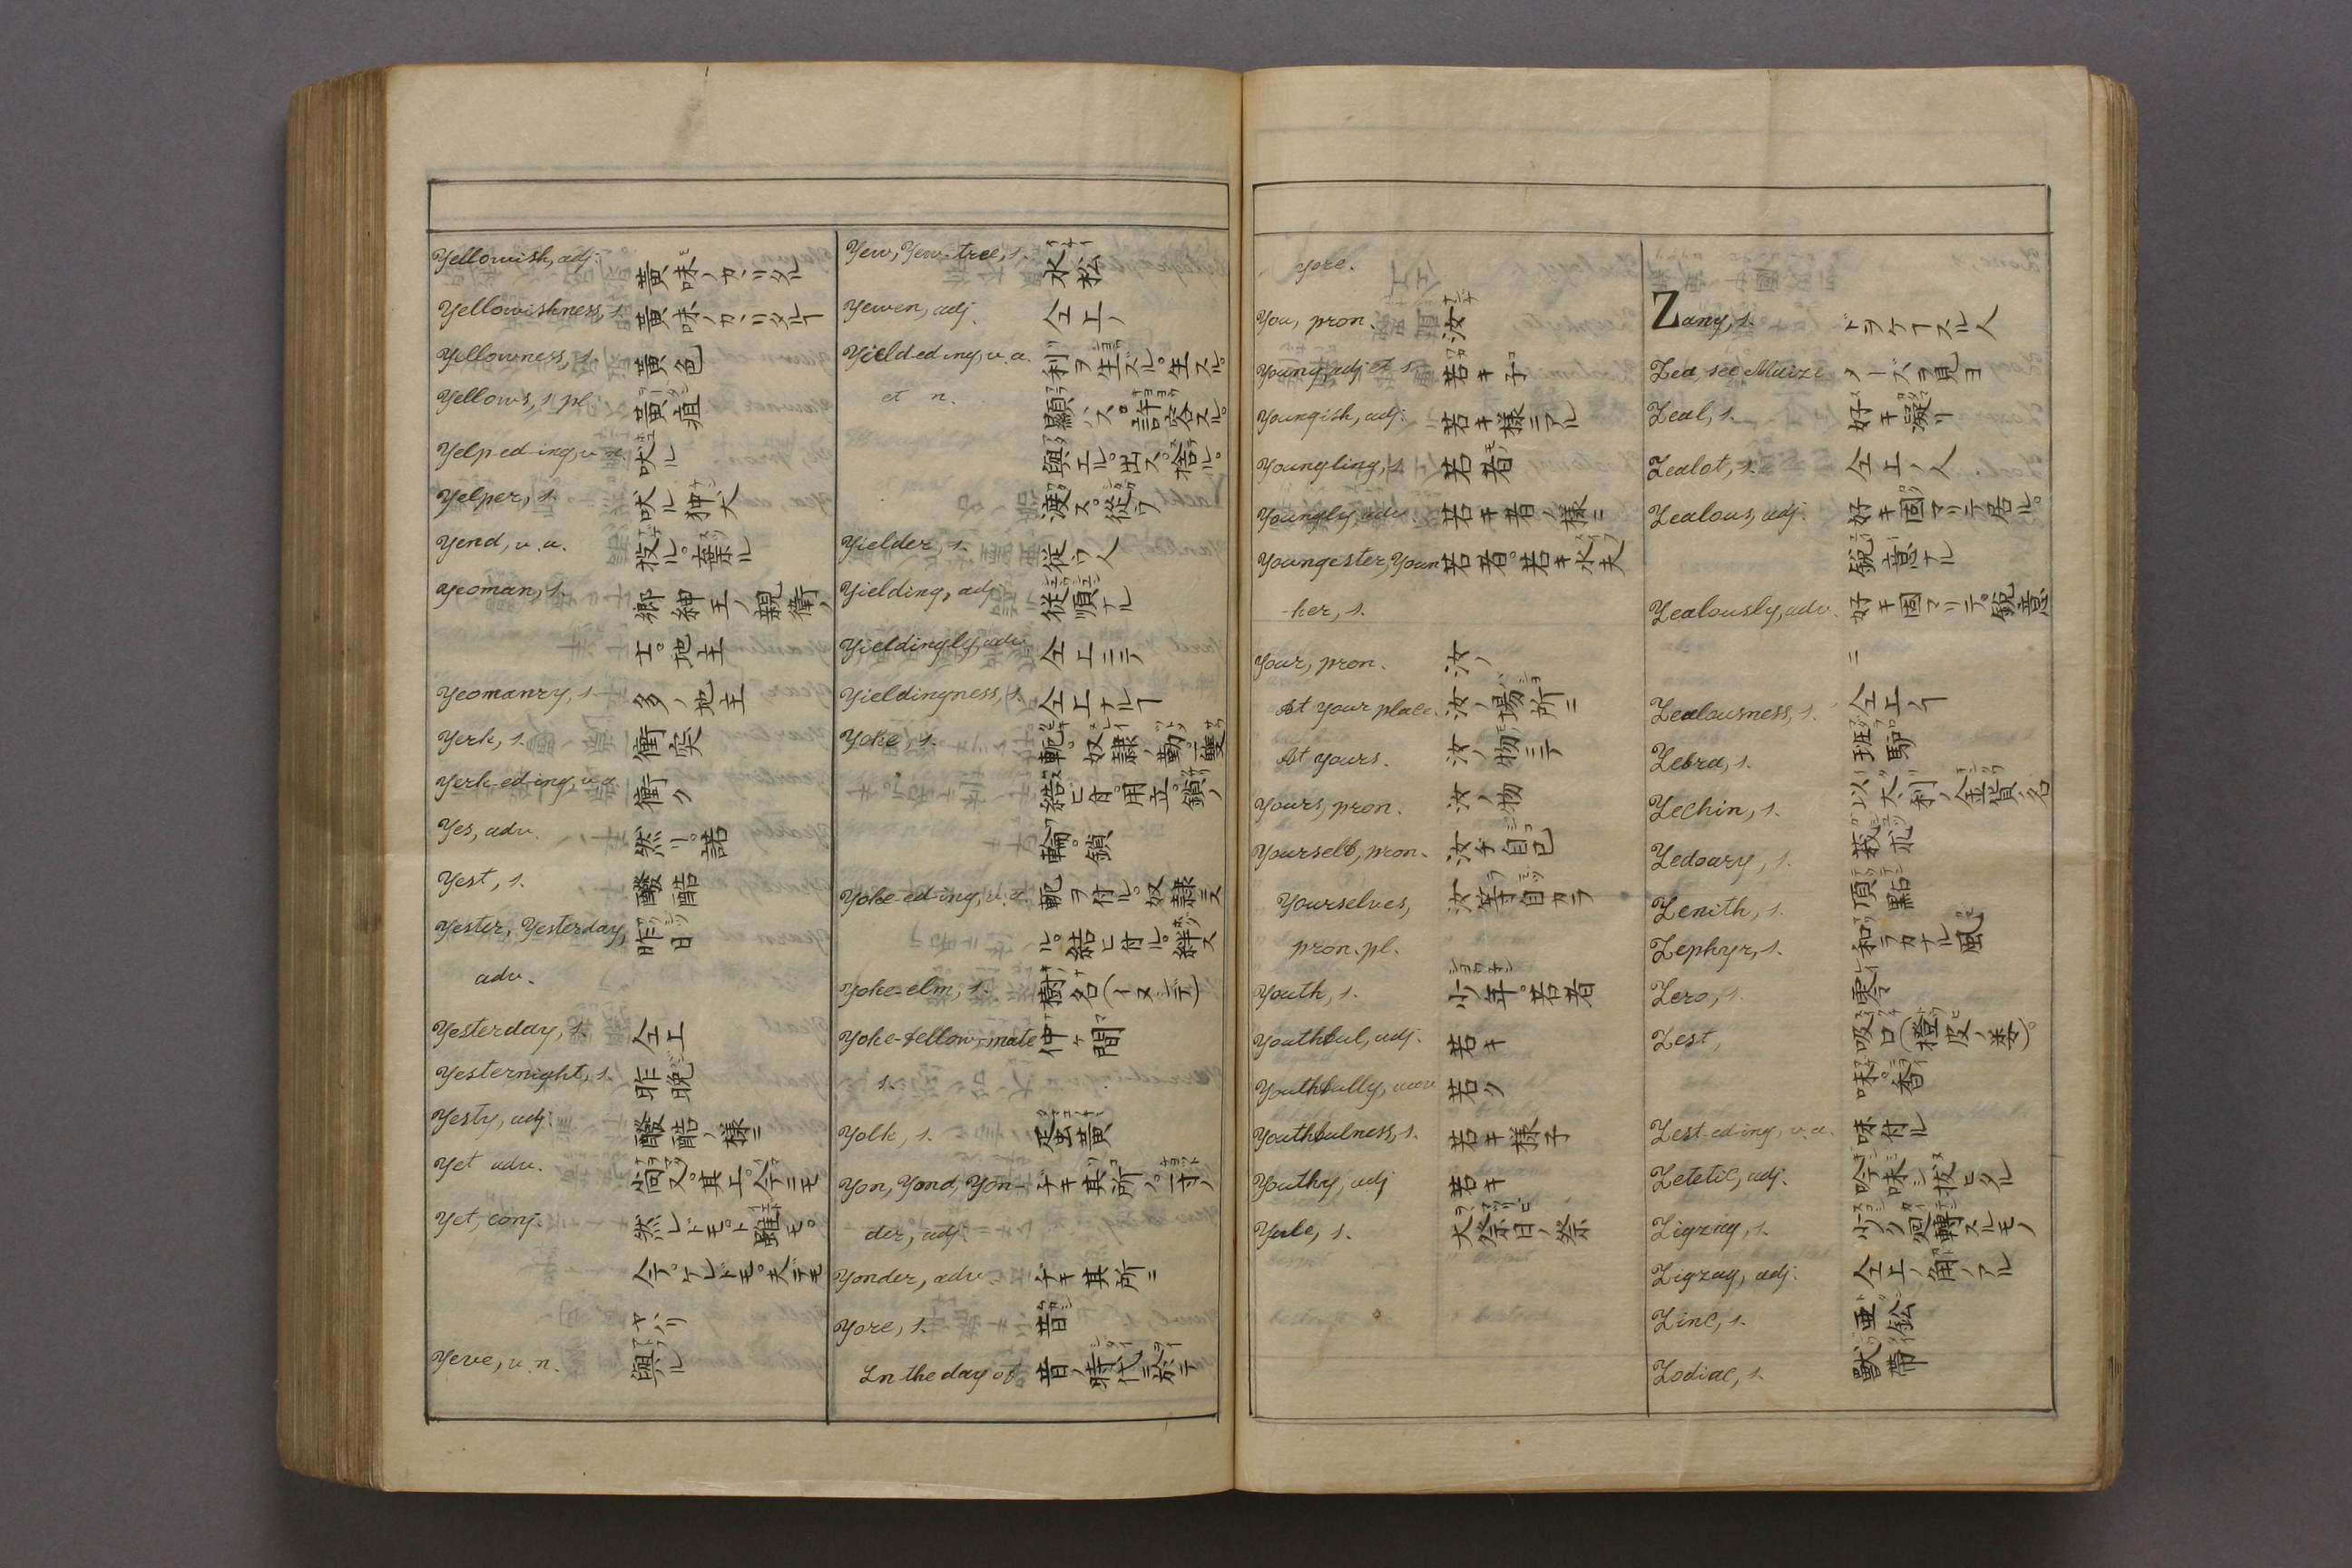 Yellowish, adj. 黄味ノカヽリタル
Yellowishness, s. 黄味ノカヽリタルヿ
Yellowness, s. 黄色
Yellows, s. pl. 黄疸
Yelp-ed-ing, v. n. 吠ル
Yelper, s. 吠ル狆犬
Yend, v. a. 投ル。棄ル
Yeoman, s. 郷紳王ノ親衛ノ
士。地主
Yeomanry, s. 多ノ地主
Yerk, s. 衝突
Yerk-ed-ing, v. a. 衝ク
Yes, adv. 然リ。諾
Yest, s. 醱酷
Yester, Yesterday, 昨日
adv.
Yesterday, s. 仝上
Yesternight, s. 昨晩
Yesty, adj. 醱酷ノ様ニ
Yet adv. 尚又。其上。今ニモ
Yet, conj. 然レドモ。ト雖モ。
今。ケレドモ。夫デモ
ヤハリ
Yeve, v. n. 與ル
Yew, Yew-tree, s. 水松
Yewen, adj. 仝上ノ
Yield-ed-ing, v. a. 利ヲ生ズル。生スル。
et n. 顯ハス。許容スル。
與エル。出ス。捨ル。
渡ス。從ウ
Yielder, s. 従ウ人
Yielding, adj. 従順ナル
Yieldingly, adv. 仝上ニテ
Yieldingness, s. 仝上ナルヿ
Yoke, s. 軛。奴隷ノ勤。雙
結ビ合。用立。鎖ノ
輪。鎖
Yoke-ed-ing, v. a. 軛ヲ付ル。奴隷ニス
ル。結ヒ付ル。絆ス
Yoke-elm, s. 樹名(イヌシデ)
Yoke-fellow-mate 仲ケ間
s.
Yolk, s. 蛋黄
Yon, Yond, Yon- 其所ノ。
der, adj.
Yonder, adv. 其所ニ
Yore, s. 昔
In the day of 昔ノ時代ニ於テ
yore.
You, pron. 汝
Young, adj et s. 若キ子
Youngish, adj. 若キ様ニアル
Youngling, s. 若者
Youngly, adv. 若キ者ノ様ニ
Youngester, Youn 若者。若キ水夫
-ker, s.
Your, pron. 汝ノ
At your place. 汝ノ場所ニ
At yours. 汝ノ物ニテ
Yours, pron. 汝ノ物
Yourself, pron. 汝チ自己
Yourselves, 汝等自カラ
pron. pl.
Youth, s. 少年。若者
Youthful, adj. 若キ
Youthfully, adv 若ク
Youthfulness, s. 若キ様子
Youthy, adj 若キ
Yule, s. 大祭日ノ祭
Zany, s. ドウケイスル人
Zea, see Maize メーズヲ見ヨ
Zeal, s. 好キ凝リ
Zealot, s. 仝上ノ人
Zealous, adj. 好キ固マリテ居ル。
鋭意ナル
Zealously, adv. 好キ固マリテ。鋭意
ニ
Zealousness, s. 仝上ノヿ
Zebra, s. 班馿
Zechin, s. 以太利ノ金貨ノ名
Zedoary, s. 莪朮
Zenith, s. 頂點
Zephyr, s. 和ラカナル風
Zero, s. 零
Zest, 吸口(橙皮ノ類)。
味。香
Zest-ed-ing, v. a. 味付ル
Zetetic, adj. 吟味シ扱ヒタル
Zigzag, s. 少ク廻轉スルモノ
Zigzag, adj. 仝上ノ角ノアル
Zinc, s. 亜鉛
Zodiac, s. 獸帶